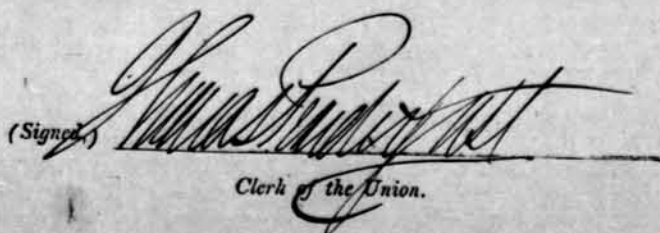 (Signed,) Thomas Prendergast
Clerk of the Union.